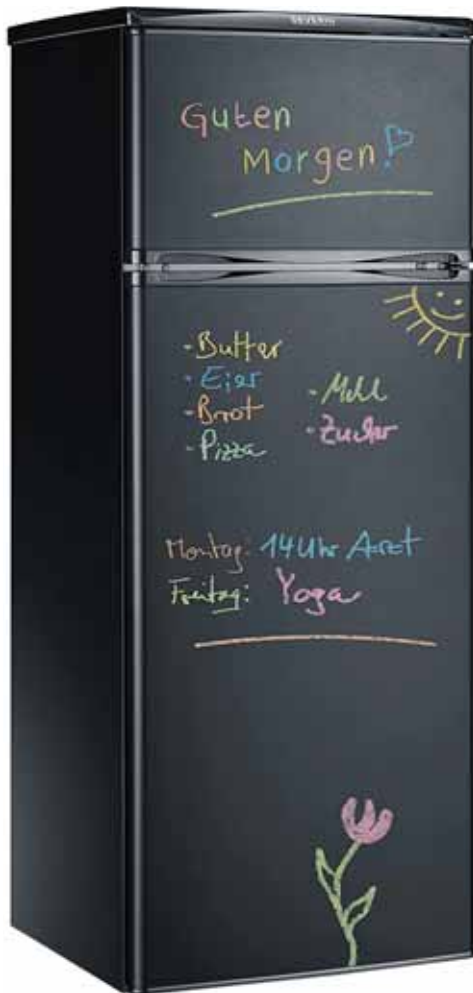 SEVERIN
Guten
Morgen!
- Butter
- Eier
- Brot
- Pizza
- Mehl
- Zucker
Montag: 14 Uhr Arzt
Freitag: Yoga